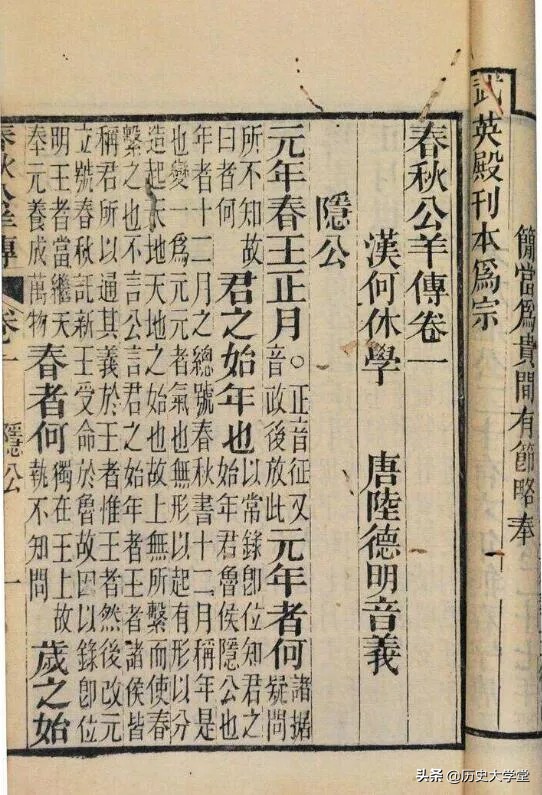 簡當爲貴間有節略奉
武英殿刊本爲宗
春秋公羊傳卷一
漢何休學 唐陸德明音義
隱公
元年春王正月。正音征又音政後放此元年者何諸據疑問
所不知故曰者何君之始年也以常錄卽位知君之始年君魯侯隱公也
年者十二月之總號春秋書十二月稱年是
也變一爲元元者氣也無形以起有形以分
造起天地天地之始也故上無所繫而使春
繫之也不言公言君之始年者王者諸侯皆
稱君所以通其義於王者惟王者然後改元
立號春秋託新王受命於魯故因以錄卽位
明王者當繼天奉元養成萬物春者何獨在王上故執不知問歲之始
春秋公羊傳 卷一 隱公 一
头条 @历史大学堂